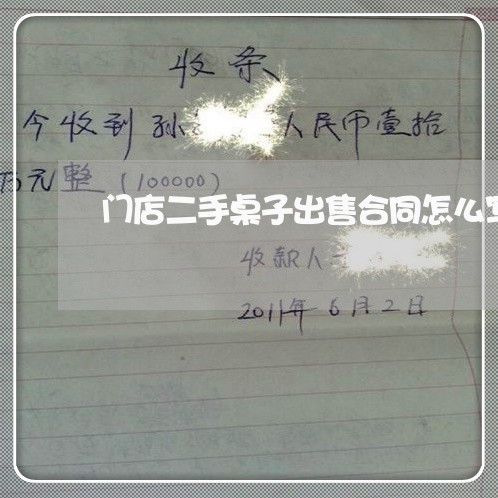 收条
今收到孙 人民币壹拾
万元整(100000)
门店二手桌子出售合同怎么
收款人
2011年6月2日